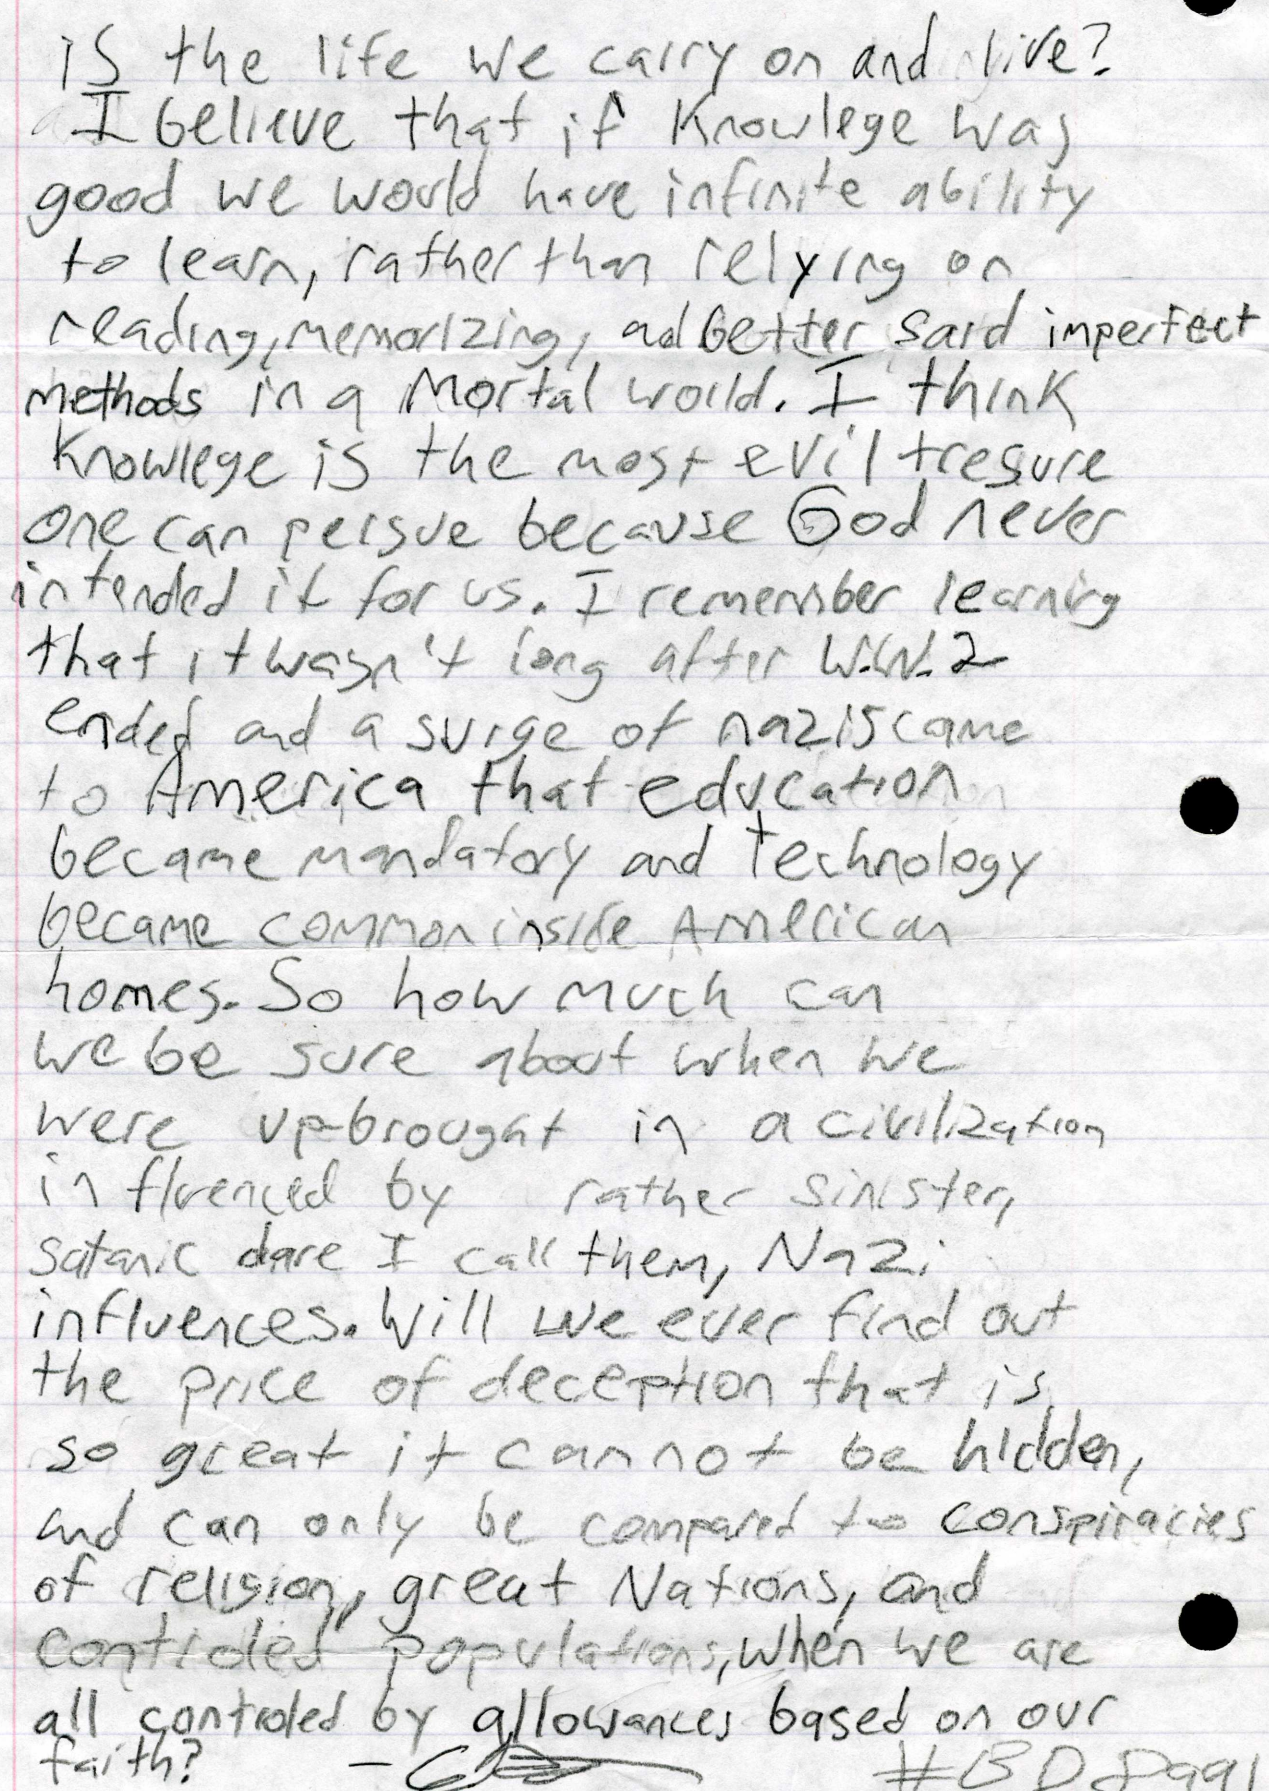 is the life we carry on and live?
I believe that if Knowlege was
good we would have infinite ability
to learn, rather than relying on
reading, memorizing, and better said imperfect
methods in a mortal world. I think
Knowlege is the most evil tresure
one can persue because God never
intended it for us. I remember learning
that it wasn't long after W.W.2
ended and a surge of nazis came
to America that education
became mandatory and technology
became common inside American
homes. So how much can
we be sure about when we
were up-brought in a civilization
influenced by rather sinister,
satanic dare I call them, Nazi
influences. Will we ever find out
the price of deception that is
so great it cannot be hidden,
and can only be compared to conspiracies
of religion, great Nations, and
controled populations, when we are
all controled by allowances based on our
faith? #BD8991